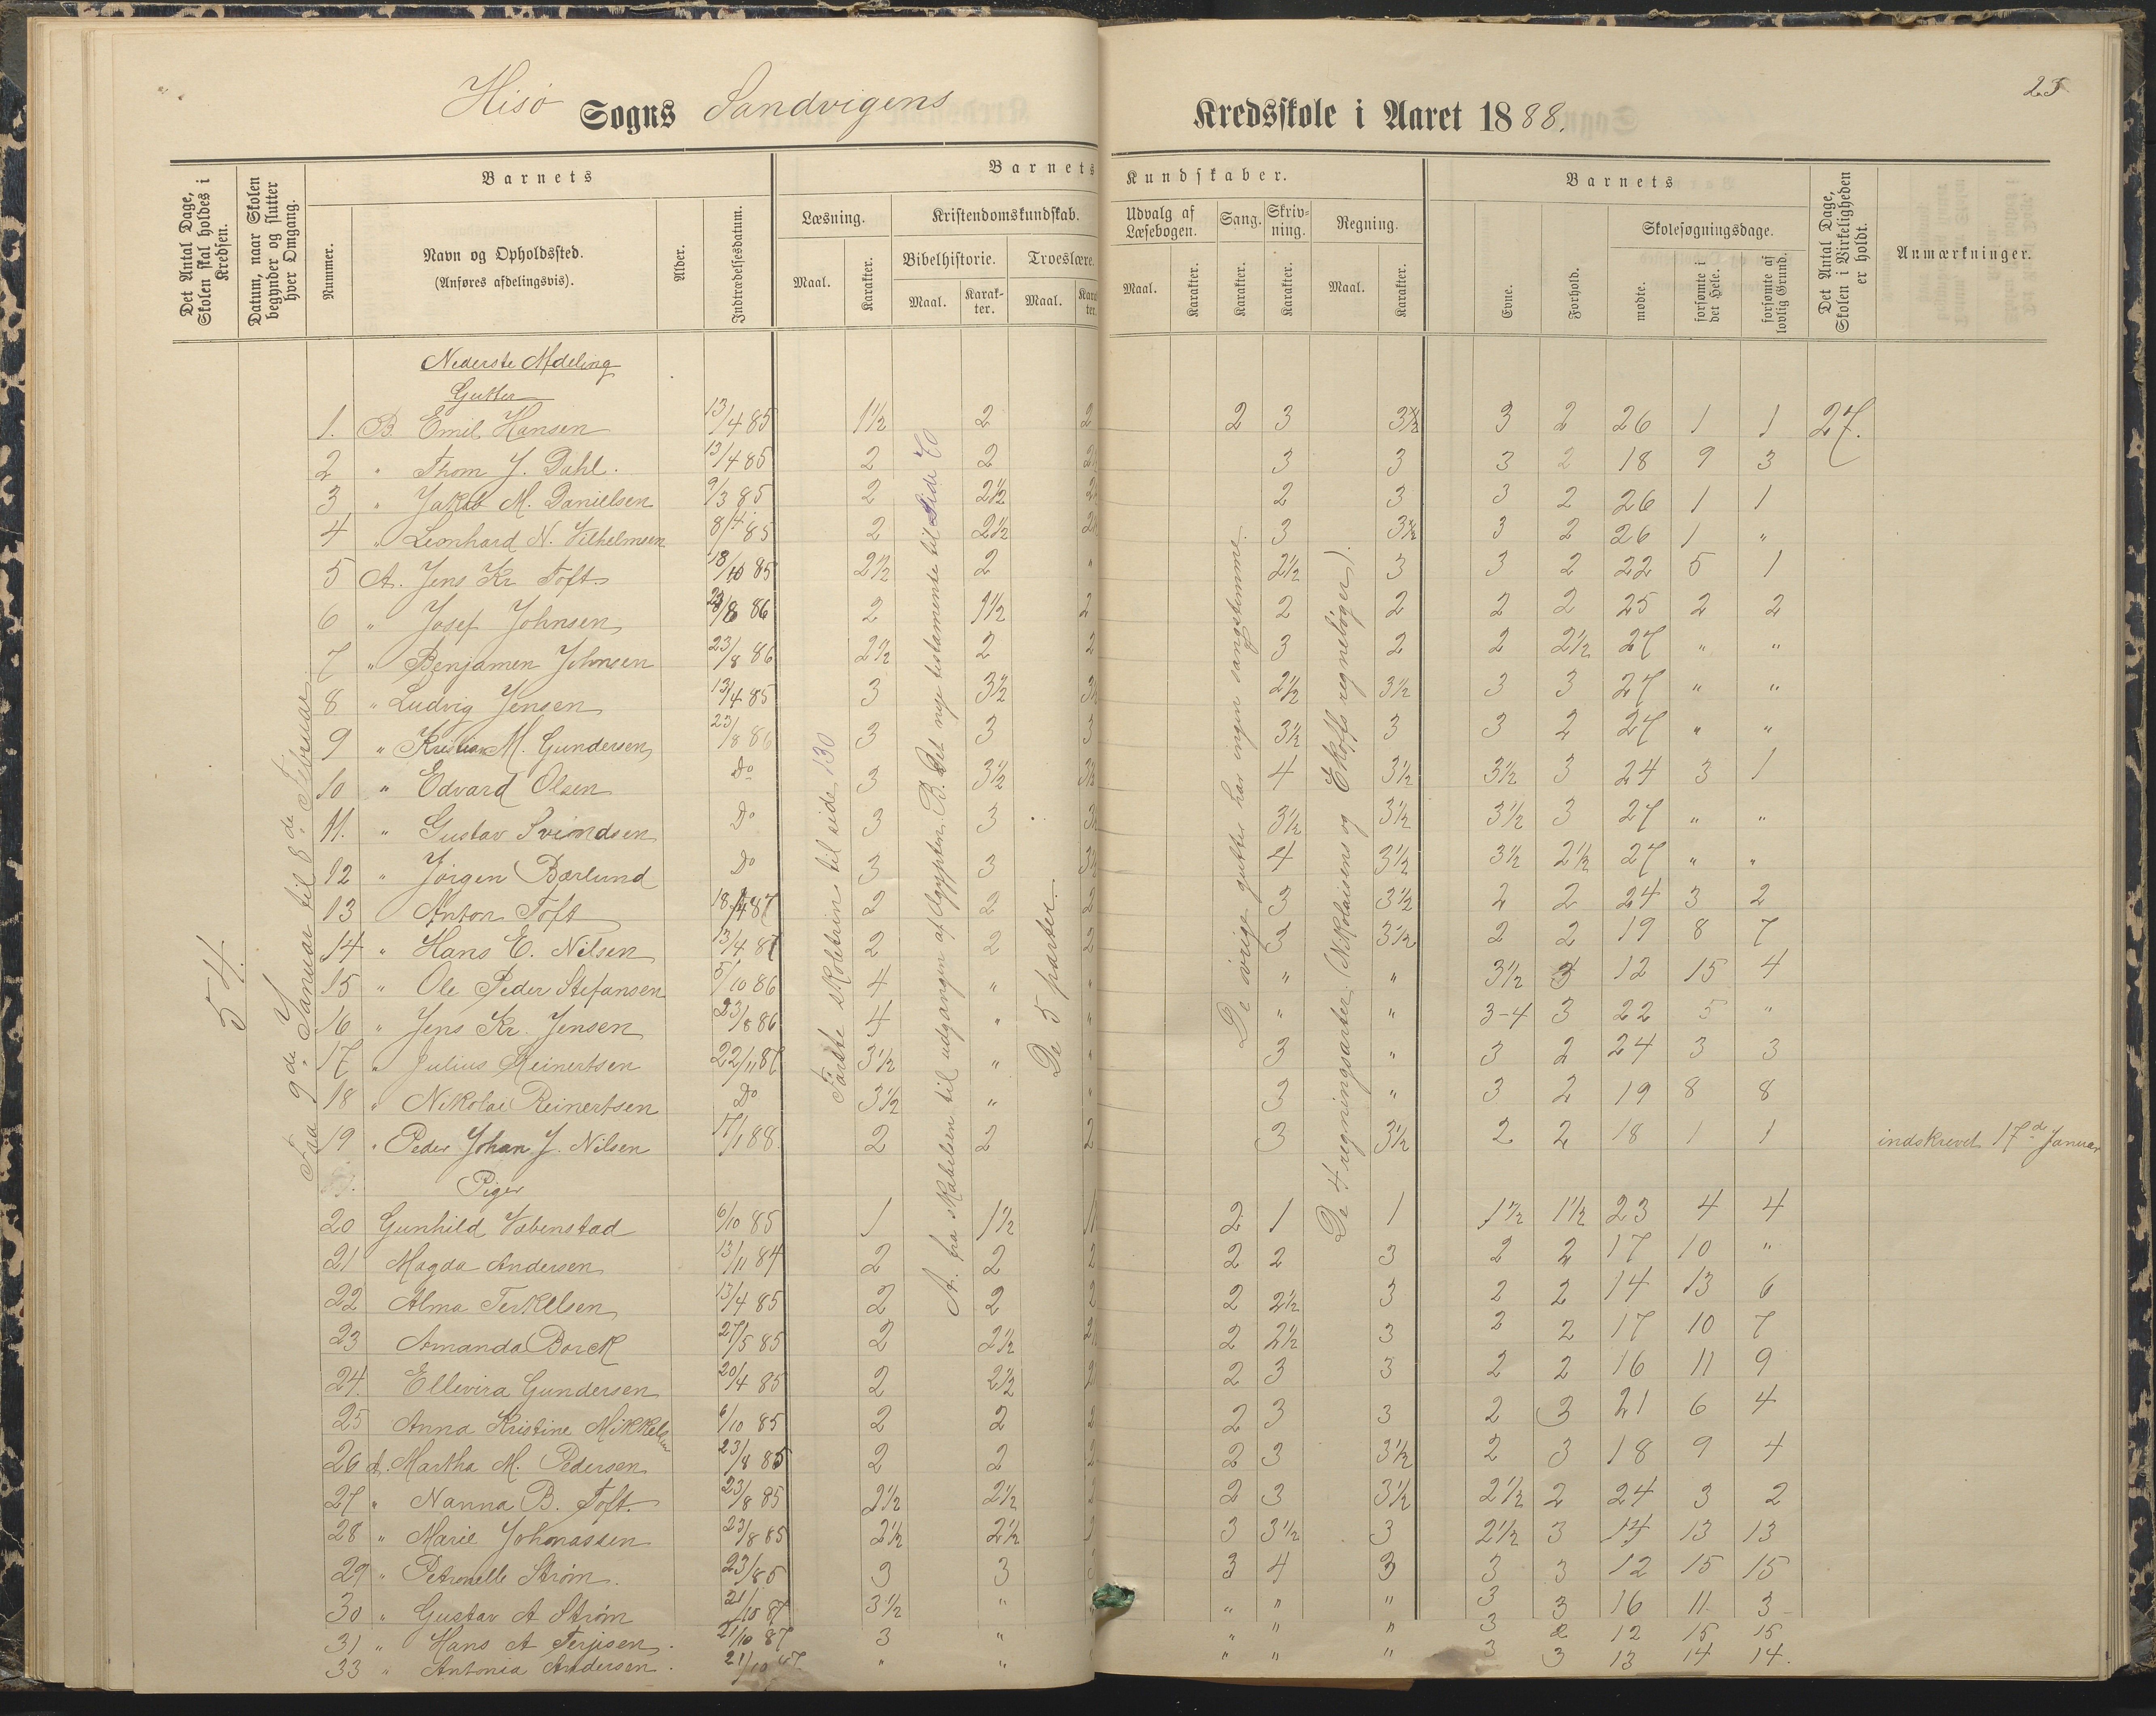 Hisö Sogns Sandvigens Kredsskole i Aaret 1888.
23
Det Antal Dage, Skolen skal holdes i Kredsen.
Datum, naar Skolen begynder og slutter hver Omgang.
Barnets
Nummer.
Navn og Opholdssted.
(Anføres afdelingsvis).
Alder.
Indtrædelsesdatum.
Barnets Kundskaber.
Læsning.
Maal.
Karakter.
Kristendomskundskab.
Bibelhistorie.
Maal.
Karakter.
Troeslære.
Maal.
Karakter.
Udvalg af Læsebogen.
Maal.
Karakter.
Sang.
Karakter.
Skrivning.
Karakter.
Regning.
Maal.
Karakter.
Barnets
Evne.
Forhold.
Skolesøgningsdage.
mødte.
forsømte i det Hele.
forsømte af lovlig Grund.
Det Antal Dage, Skolen i Virkeligheden er holdt.
Anmærkninger.
54.
Fra 9de Januar til 8de Februar
Første skoletrin til side 130
A. fra skabelsen til udgangen af Ægypten. B. Det nye testamente til
De 5 parter.
De øvrige gutter har ingen sangstemme.
De 4 regningsarter. (Nikolaisens og Ekoffs regnebøger).
Nederste Afdeling
Gutter
1. B Emil Hansen 13/4 85 1½ 2 2 2 3 3½ 3 2 26 1 1 27.
2 " Thom J. Dahl. 13/4 85 2 2 3 3 3 2 18 9 3
3 " Jakob M. Danielsen 9/3 85 2 2½ 2 3 3 2 26 1 1
4 " Leonhard N. Vilhelmsen 8/4 85 2 2½ 3 3½ 3 2 26 1 "
5 A. Jens Kr Toft 18/10 85 2½ 2 " 2½ 3 3 2 22 5 1
6 " Josef Johnsen 23/8 86 2 1½ 2 2 2 2 2 25 2 2
7 " Benjamen Johnsen 23/8 86 2½ 2 2 3 2 2 2½ 27 " "
8 " Ludvig Jensen 13/4 85 3 3½ 3½ 2½ 3½ 3 3 27 " "
9 " Kristian M. Gundersen 23/8 86 3 3 3 3½ 3 3 2 27 " "
10 " Edvard Olsen Do 3 3½ 3½ 4 3½ 3½ 3 24 3 1
11. " Gustav Svendsen Do 3 3 3½ 3½ 3½ 3½ 3 27 " "
12 " Jørgen Bærlund Do 3 3 3½ 4 3½ 3½ 2½ 27 " "
13 Anton Toft 18/4 87 2 2 2 3 3½ 2 2 24 3 2
14 " Hans E. Nilsen 13/4 87 2 2 2 3 3½ 2 2 19 8 7
15 " Ole Peder Stefansen /10 86 4 " " " " 3½ 3 12 15 4
16 " Jens Kr. Jensen 23/8 86 4 " " " " 3-4 3 22 5 "
17 " Julius Reinertsen 22/11 87 3½ " " 3 " 3 2 24 3 3
18 " Nikolai Reinertsen Do 3½ " " 3 " 3 2 19 8 8
19 " Peder Johan J. Nilsen 17/1 88. 2 2 2 3 3½ 2 2 18 1 1 indskrevet 17de Januar
Piger
20 Gunhild Vabenstad 6/10 85 1 1½ 2 1 1 1½ 1½ 23 4 4
21 Magda Andersen 13/11 84 2 2 2 2 2 3 2 2 17 10 "
22 Alma Terkelsen 13/4 85 2 2 2 2 2½ 3 2 2 14 13 6
23 Amanda Borck 27/5 85 2 2½ 2 2½ 3 2 2 17 10 7
24. Ellevira Gundersen 20/4 85 2 2½ 2 3 3 2 2 16 11 9
25 Anna Kristine Mikkelsen 6/10 85 2 2 2 2 3 3 2 3 21 6 4
26 A. Martha M. Pedersen 23/8 85 2 2 2 2 3 3½ 2 3 18 9 4
27 " Nanna B. Toft. 23/8 85 2½ 2½ 2 3 3½ 2½ 2 24 3 2
28 " Marie Johnassen 23/8 85 2½ 2½ 3 3½ 3 2½ 3 14 13 13
29 " Petronelle Strøm. 23/8 85 3 3 3 4 3 3 3 12 15 15
30 " Gustav A Strøm 21/10 87 3½ " " " " 3 3 16 11 3
31 " Hans A Terjesen. 21/10 87 3 " " " " 3 2 12 15 15
33 " Antonia Andersen. 21/10 87. " " " " " 3 3 13 14 14.